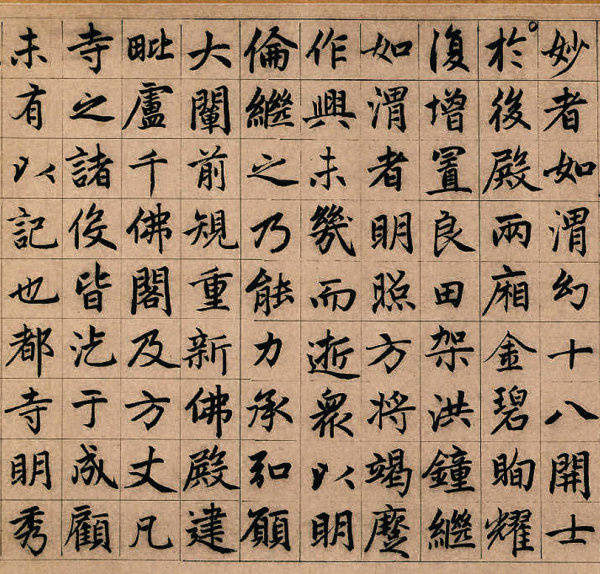 妙者如渭幻十八開士
於後殿兩廂金碧眴耀
復增置良田架洪鐘繼
如渭者明照方將竭蹙
作興未幾而逝衆以明
倫繼之乃能力承弘願
大闡前規重新佛殿建
毗盧千佛閣及方丈凡
寺之諸役皆汔于成顧
未有以記也都寺明秀